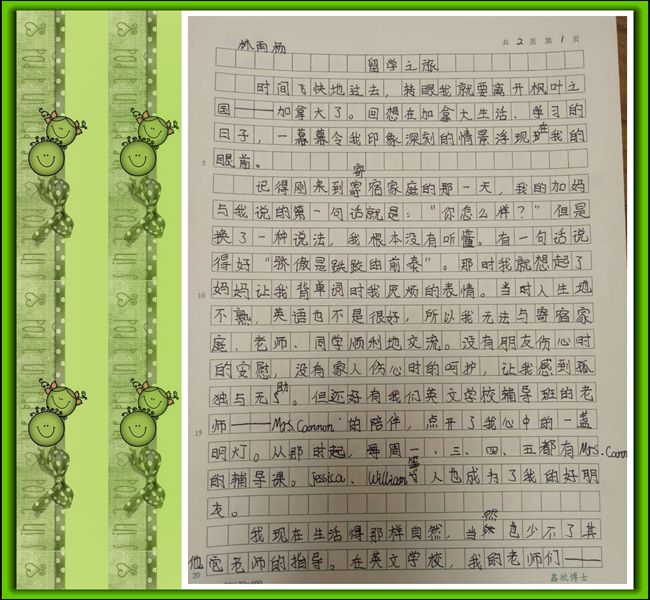 林雨杨
共 2 页 第 1 页
留学之旅
时间飞快地过去，转眼我就要离开枫叶之
国——加拿大了。回想在加拿大生活、学习的
日子，一幕幕令我印象深刻的情景浮现在我的
眼前。
记得刚来到寄宿家庭的那一天，我的加妈
与我说的第一句话就是：“你怎么样？”但是
换了一种说法，我根本没有听懂。有一句话说
得好“骄傲是跌跤的前奏”。那时我就想起了
妈妈让我背单词时我厌烦的表情。当时人生地
不熟，英语也不是很好，所以我无法与寄宿家
庭、老师、同学顺利地交流。没有朋友伤心时
的安慰，没有家人伤心时的呵护，让我感到孤
独与无助。但还好有我们英文学校辅导班的老
师——Mrs. Coannon 的陪伴，点开了我心中的一盏
明灯。从那时起，每周一、三、四、五都有Mrs. Coannon
的辅导课。Jessica、William等人也成为了我的好朋
友。
我现在生活得那样自然，当然也少不了其
他老师的指导。在英文学校，我的老师们——
5
10
15
20
鑫欣博士